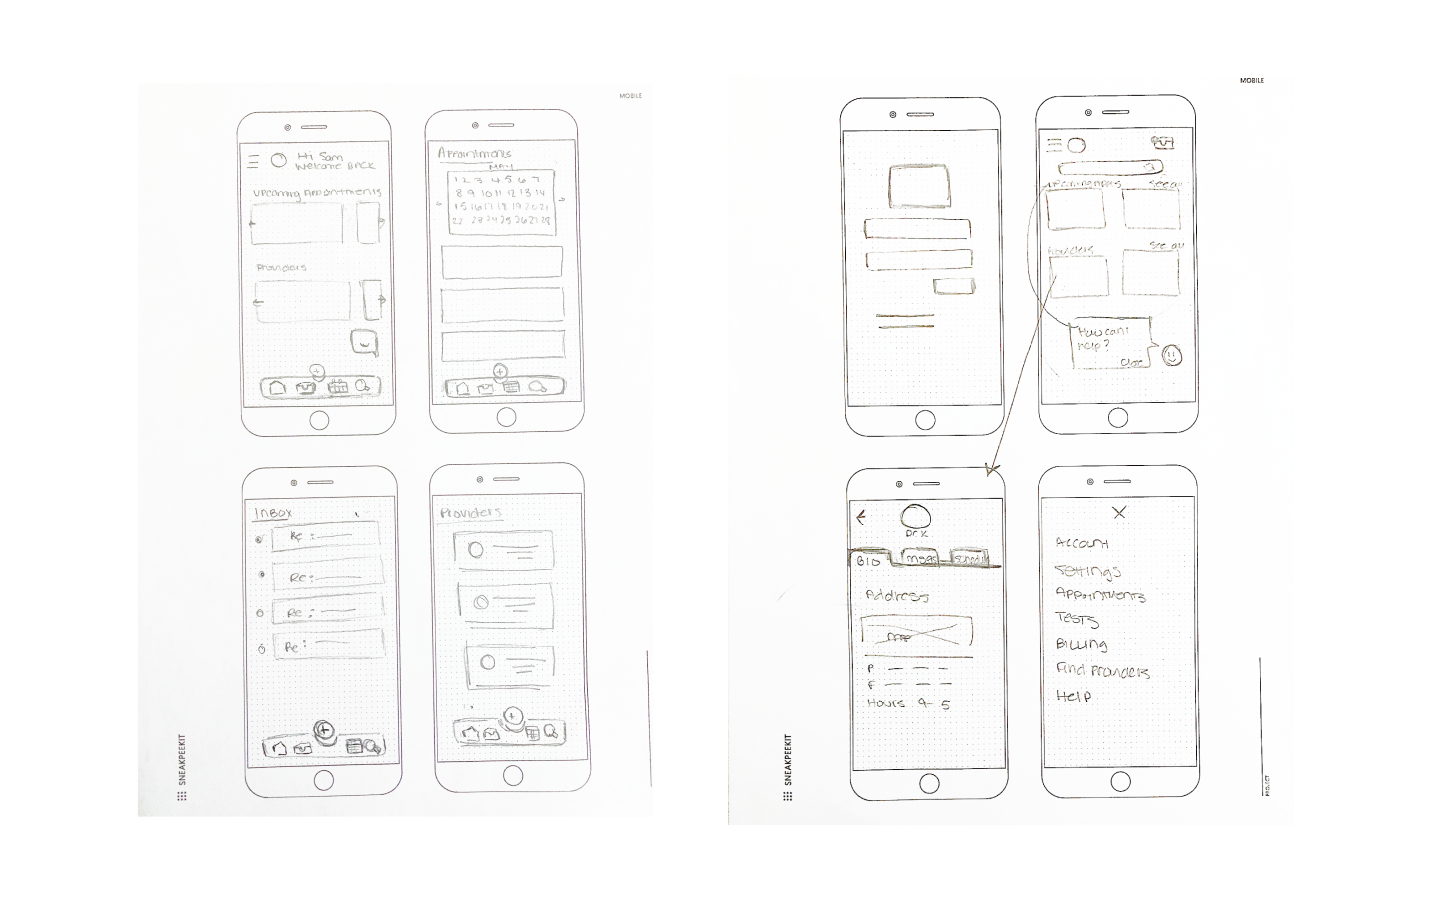 MOBILE
Hi Sam
Welcome BACK
Upcoming Appointments
Providers
Appointments
MAY
1 2 3 4 5 6 7
8 9 10 11 12 13 14
15 16 17 18 19 20 21
22 23 24 25 26 27 28
Inbox
Re:
Re:
Re:
Re:
Providers
SNEAKPEEKIT
MOBILE
See all
Providers
See all
How can I
help?
Close
Dr X
BIO
msgs
Address
map
P
F
Hours 9-5
X
Account
Settings
Appointments
TESTS
Billing
Find Providers
Help
SNEAKPEEKIT
PROJECT